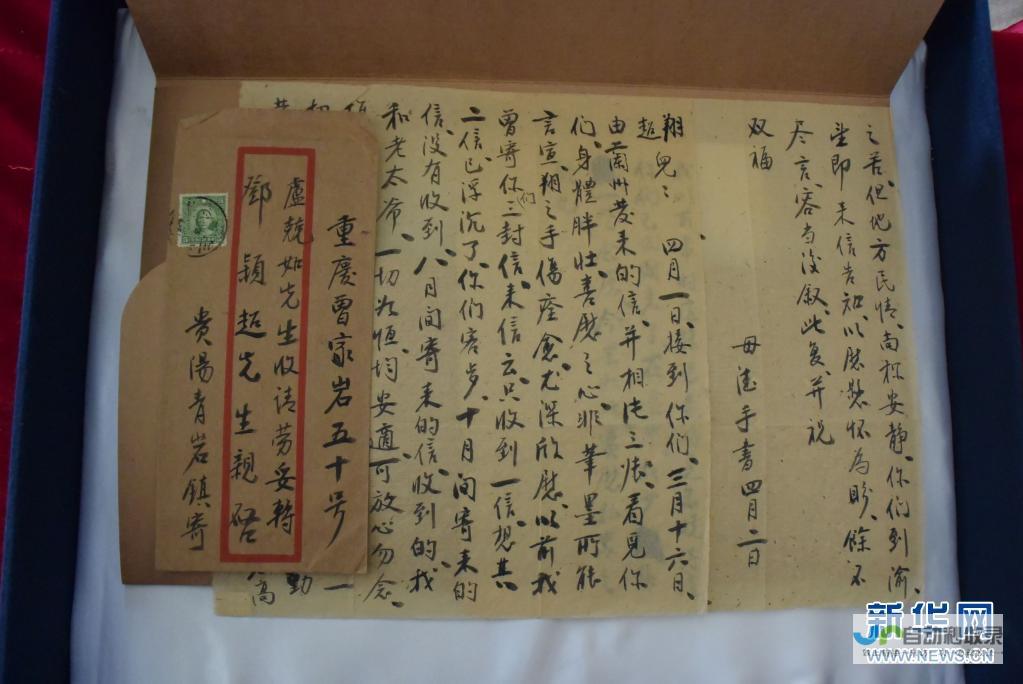 之苦、但地方民情、尚称安静、你们到渝、
望即来信告知、以慰愁怀为盼、馀不
尽言、容当后叙、此复、并祝
双福
母德手书四月二日
翔
超
兒：四月一日、接到你们、三月十六日、
由蘭州发来的信、并相片三张、看見你
们、身體胖壮、喜慰之心、非筆墨所能
言宣、翔之手傷痊愈、尤深欣慰、以前我
曾寄你们三封信、来信云、只收到一信、想其
二信、已浮沉了、你们客岁、十月间寄来的
信、没有收到、八月间寄来的信、收到的、我
和老太爷、一切如恒、均安適、可放心勿念、
重慶曾家岩五十号
盧競如先生收请劳妥轉
鄧穎超先生親啓
贵陽青岩鎮寄
新华网
自动秒收录
WWW.NEWS.CN